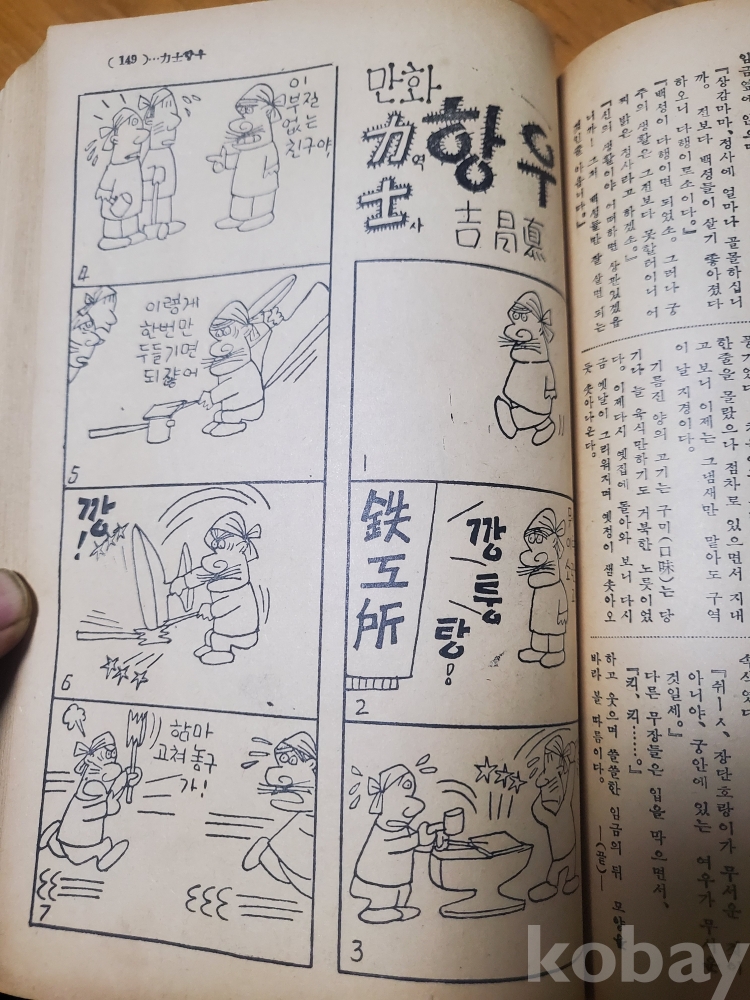 (149)…力士항우
만화
力역士사 항우
吉昌悳
1
鉄工所
깡
퉁
탕!
2
3
이
부질
없는
친구야.
4
이렇게
한번만
두들기면
되잖어
5
깡!
6
함마
고쳐놓구
가!
7
『상감마마, 정사에 얼마나 골몰하십니
까. 전보다 백성들이 살기 좋아졌다
하오니 다행이로소이다.』
『백성이 다행이면 되었소. 그러나 궁
주의 생활은 그전보다 못할러이니 어
찌 밝은 정사라고 하겠소.』
『신의 생활이야 어떠하면 상관있겠읍
니까— 그저 백성들만 잘 살면 되는
것인줄 아옵니다.』
한줄을 몰랐으나 점차로 있으면서 지내
고 보니 이제는 그냄새만 맡아도 구역
이 날 지경이다.
기름진 양의 고기는 구미(口味)는 당
기나 늘 육식만하기도 거북한 노릇이었
다. 이제다시 옛집에 돌아와 보니 다시
금 옛날이 그리워지며 옛정이 샘솟아오
듯 솟아나온다.
『쉬—ㅅ, 장단호랑이가 무서운
아니야, 궁안에 있는 여우가
것일세.』
다른 무장들은 입을 막으면서,
『킥, 킥……』
하고 웃으며 쓸쓸한 임금의 뒤 모양을
바라 볼 따름이다. —(끝)—
kobay